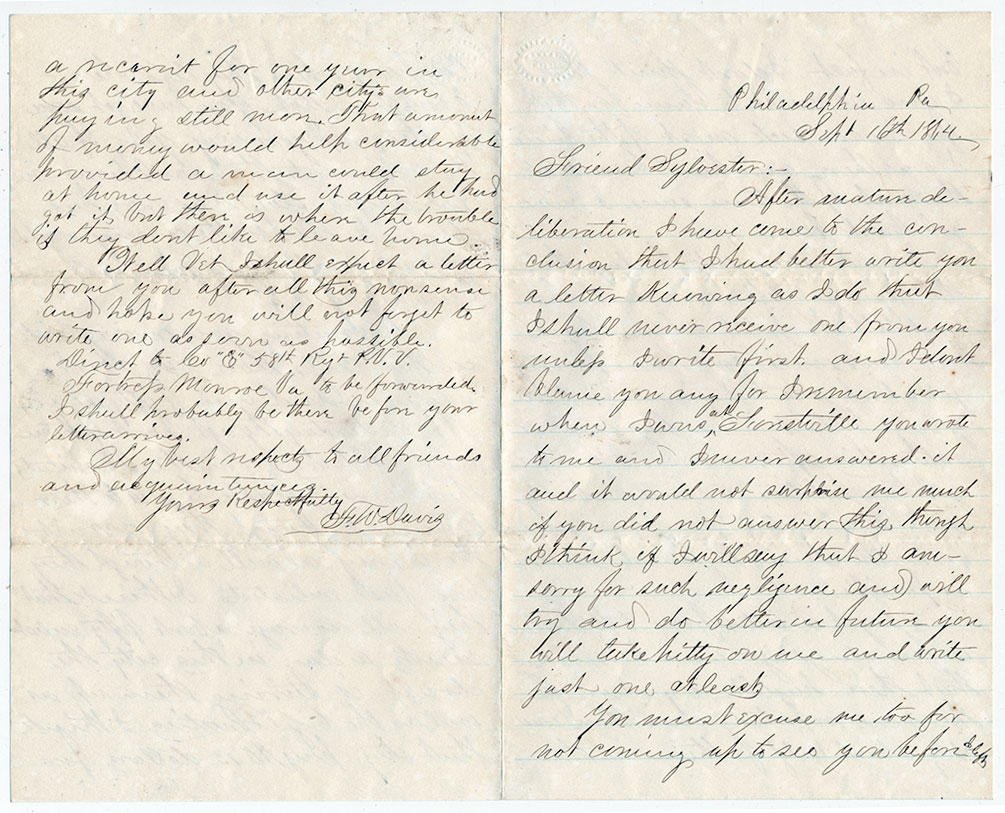 Philadelphia Pa
Sept 16th 1864
Friend Sylvester:-
After mature de-
liberation I have come to the con-
clusion that I had better write you
a letter Knowing as I do that
I shall never receive one from you
unless I write first. and I dont
blame you any for I remember
when I was at Forestville you wrote
to me and I never answered it
and it would not surprise me much
if you did not answer this, though
I think if I will say that I am
sorry for such negligence and will
try and do better in future you
will take pitty on me and write
just one at least
You must excuse me too for
not coming up to see you before I left
a recruit for one year in
this city and other citys are
paying still more. That amount
of money would help considerable
provided a man could stay
at home and use it after he had
got it, but then is where the trouble
is they dont like to leave home.
Well Vet I shall expect a letter
from you after all this nonsense
and hope you will not forget to
write one as soon as possible.
Direct to Co "E" 58th Regt P.V.V.
Fortress Monroe Va to be forwarded.
I shall probably be there before your
letter arrives.
My best respects to all friends
and acquaintances.
Yours Respectfully
F. W. Davis